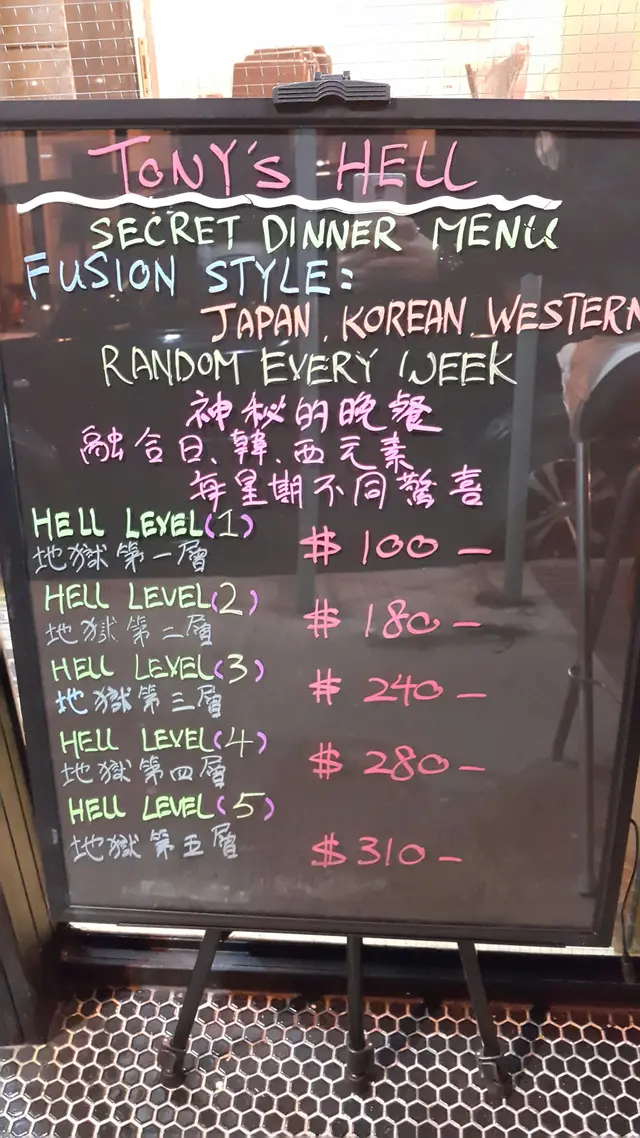 TONY'S HELL
SECRET DINNER MENU
FUSION STYLE:
JAPAN, KOREAN, WESTERN
RANDOM EVERY WEEK
神秘的晚餐
融合日、韓、西元素
每星期不同驚喜
HELL LEVEL(1)
地獄第一層
$ 100 –
HELL LEVEL(2)
地獄第二層
$ 180 –
HELL LEVEL(3)
地獄第三層
$ 240 –
HELL LEVEL(4)
地獄第四層
$ 280 –
HELL LEVEL(5)
地獄第五層
$ 310 –